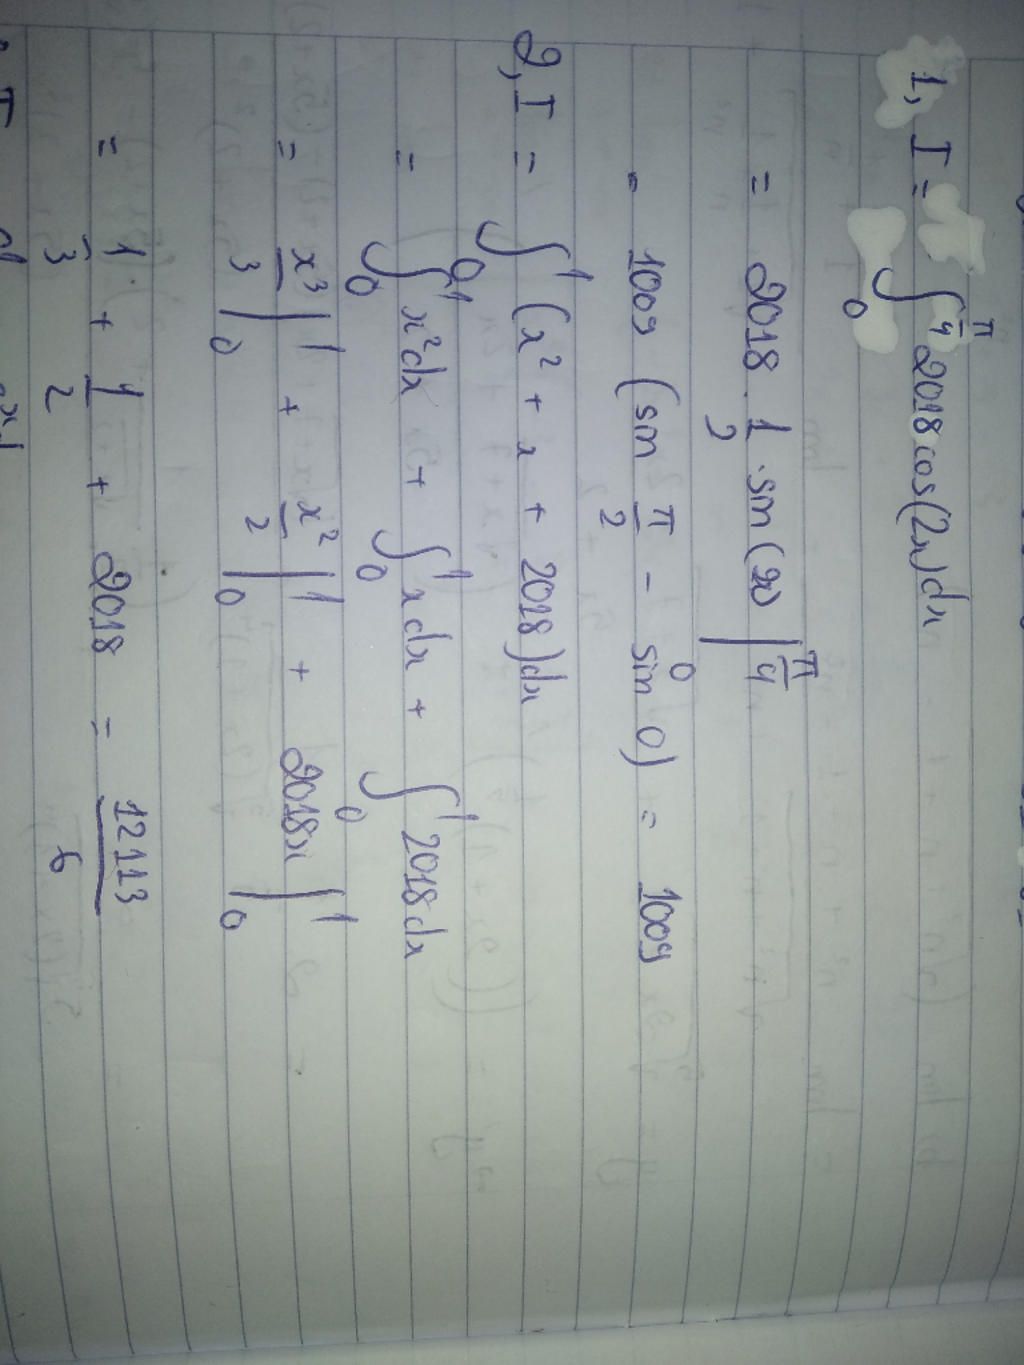 1, I = ∫₀^(π/4) 2018 cos(2x) dx
= 2018 . 1/2 . sin(2x) |₀^(π/4)
= 1009 (sin π/2 - sin 0) = 1009
2, I = ∫₀¹ (x² + x + 2018) dx
= ∫₀¹ x² dx + ∫₀¹ x dx + ∫₀¹ 2018 dx
= x³/3 |₀¹ + x²/2 |₀¹ + 2018x |₀¹
= 1/3 + 1/2 + 2018 = 12113/6